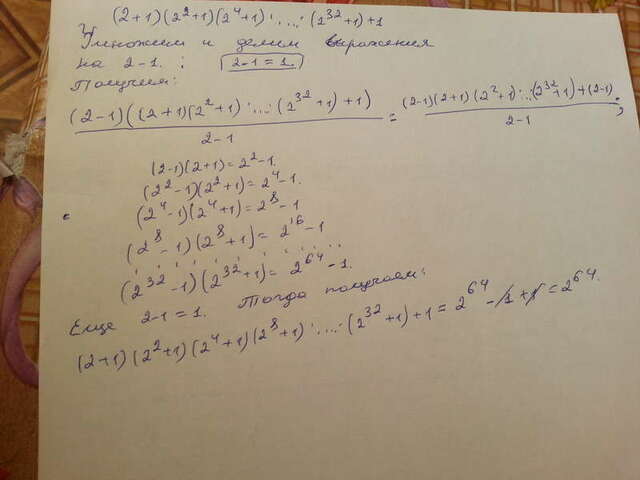 (2+1)(2²+1)(2⁴+1)·...·(2³²+1)+1
Умножим и делим выражения
на 2-1. : 2-1=1.
Получим:
(2-1)((2+1)(2²+1)·...·(2³²+1)+1) / 2-1 = (2-1)(2+1)(2²+1)·...·(2³²+1)+(2-1) / 2-1 ;
(2-1)(2+1)=2²-1.
(2²-1)(2²+1)=2⁴-1.
(2⁴-1)(2⁴+1)=2⁸-1
(2⁸-1)(2⁸+1)=2¹⁶-1
(2³²-1)(2³²+1)=2⁶⁴-1.
Еще 2-1=1. Тогда получаем:
(2+1)(2²+1)(2⁴+1)(2⁸+1)·...·(2³²+1)+1=2⁶⁴-1+1=2⁶⁴.